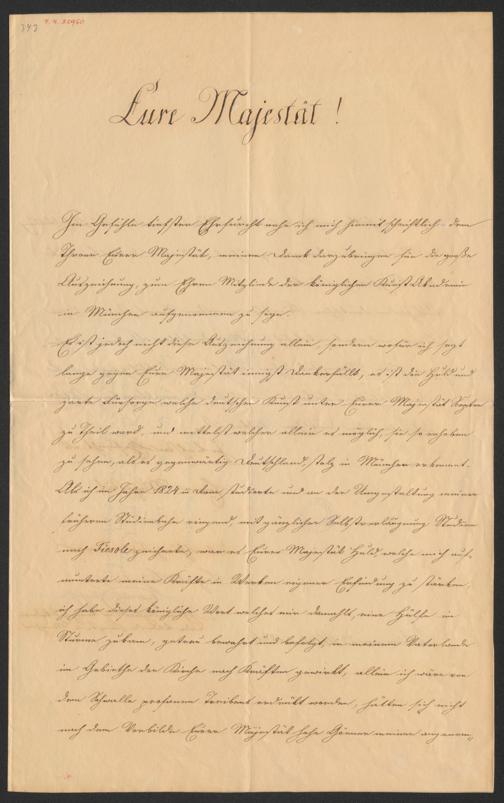 343 4. H. 25960
Eure Majestät!
Im Gefühle tiefster Ehrfurcht nahe ich mich hiemit schriftlich dem
Throne Eurer Majestät, meinen Dank darzubringen für die große
Auszeichnung, zum Ehren Mitgliede der königlichen Kunst Akademie
in München aufgenommen zu seyn.
Es ist jedoch nicht diese Auszeichnung allein, sondern wofür ich schon
lange gegen Eure Majestät innigst Dankerfüllt, es ist die Huld und
zarte Fürsorge welche deutscher Kunst unter Eurer Majestät Scepter
zu Theil ward, und mittelst welcher allein es möglich, sie so erhoben
zu sehen, als es gegenwärtig Deutschland, stolz in München erkennt.
Als ich im Jahre 1824 in Rom studierte und an der Umgestaltung meiner
früheren Studienbahn ringend, mit gänzlicher Selbstverläugnung Studien
nach Fiesole zeichnete, war es Eurer Majestät Huld welche mich auf-
munterte meine Kräfte in Werken eigener Erfindung zu stärken,
ich habe dieses königliche Wort welches mir damahls, eine Hülfe im
Sturme zukam, getreu bewahrt und befolgt, in meinem Vaterlande
im Gebiethe der Kirche nach Kräften gewirkt, allein ich wäre von
dem Schwalle profanen Treibens erdrückt worden, hätten sich nicht
nach dem Vorbilde Eurer Majestät hohe Gönner meiner angenom-